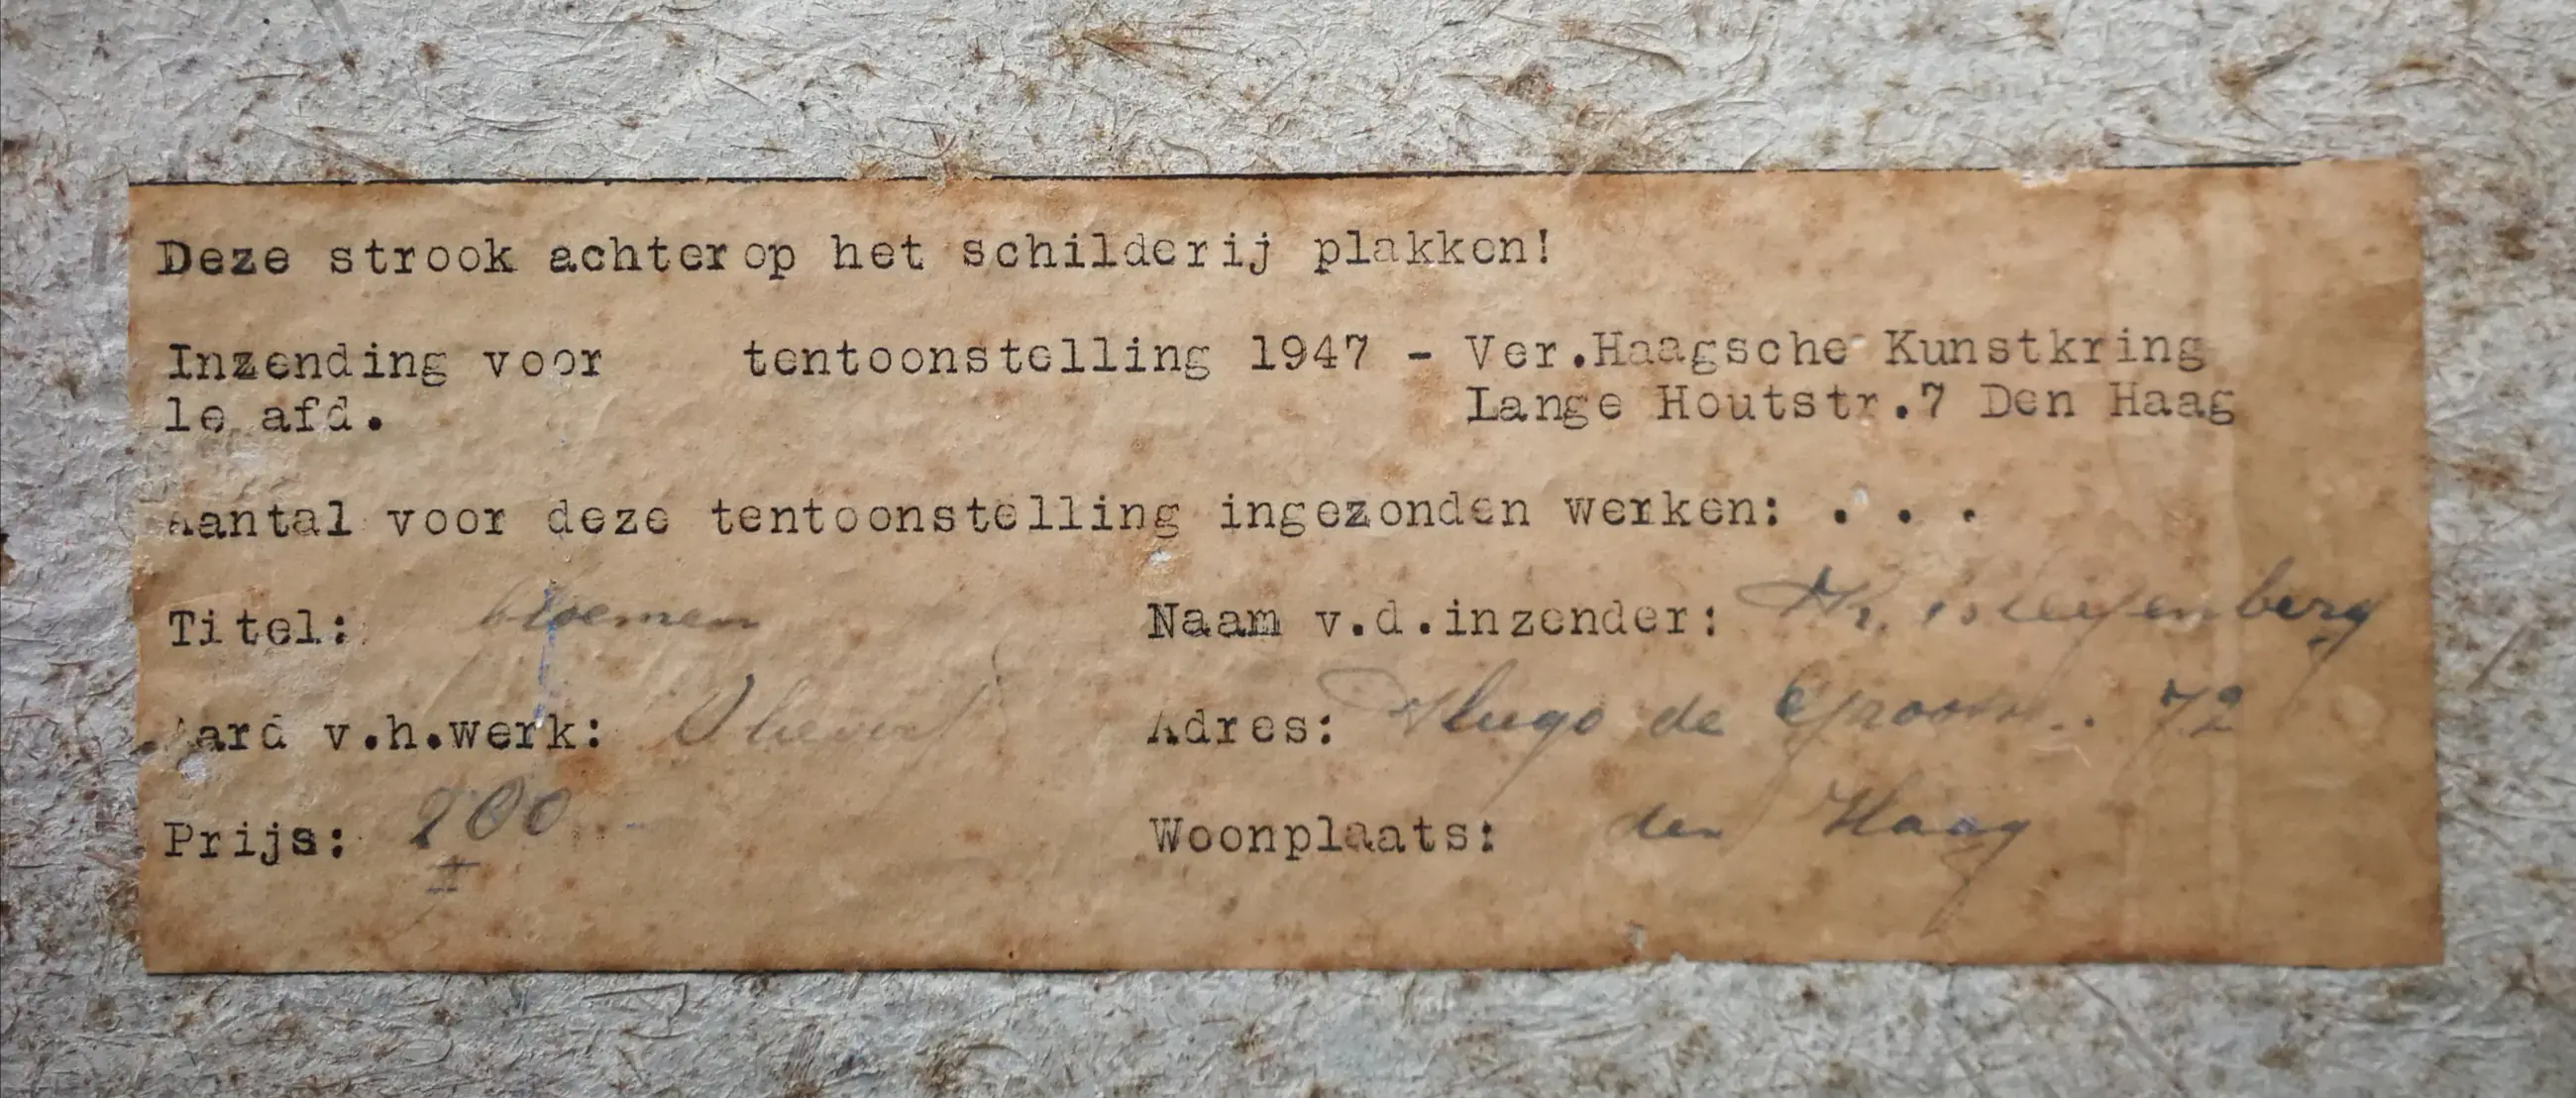 Deze strook achterop het schilderij plakken!
Inzending voor tentoonstelling 1947 - Ver.Haagsche Kunstkring
1e afd. Lange Houtstr.7 Den Haag
Aantal voor deze tentoonstelling ingezonden werken: . . .
Titel: bloemen Naam v.d.inzender:
Aard v.h.werk: Adres: Hugo de 72
Prijs: 200 Woonplaats: den Haag